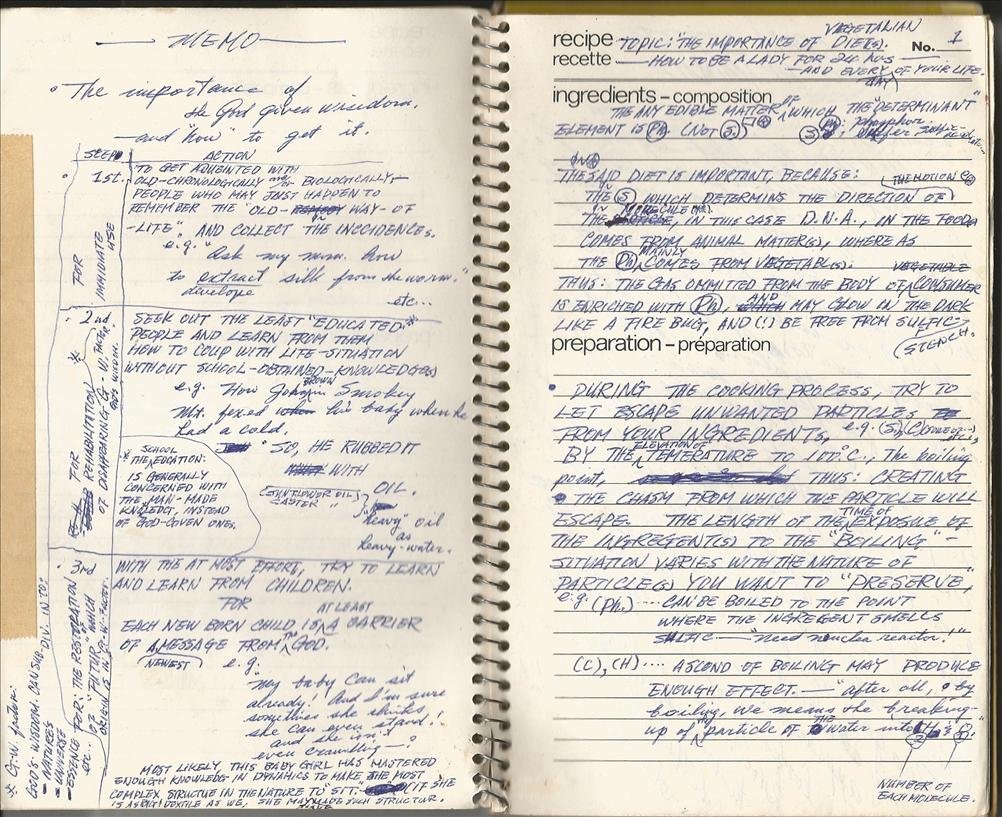 MEMO
The importance of
the God given wisdom.
and "how" to get it.
STEP ACTION
1st. TO GET AQUENTED WITH
OLD-CHRONOLOGICALLY and/or BIOLOGICALLY,—
PEOPLE WHO MAY JUST HAPPEN TO
REMEMBER THE "OLD- WAY-OF
-LIFE" AND COLLECT THE INCCIDENCES.
e.g. "Ask my mom. how
to extract silk from the worm."
develope
etc...
FOR IMMIDIATE USE
2nd SEEK OUT THE LEAST "EDUCATED" *
PEOPLE AND LEARN FROM THEM
HOW TO COUP WITH LIFE-SITUATION
WITHOUT SCHOOL-OBTAINED-KNOWLEDGE(S)
e.g. How Smokey
BROWN
Mt. fexed his baby when he
had a cold.
"SO, HE RUBBED IT
WITH
OIL.
CASTER "
"heavy" oil
as
heavy-water.
* SCHOOL
THE EDUCATION:
IS GENERALLY
CONCERNED WITH
THE MAN-MADE
INSTEAD
OF GOD-GIVEN ONES.
FOR REHABILITATION
OF DISAPPEARING G.W. FACTOR.
3rd WITH THE AT MOST EFFORT, TRY TO LEARN
AND LEARN FROM CHILDREN.
FOR
AT LEAST
EACH NEW BORN CHILD IS A CARRIER
OF A MESSAGE FROM THE GOD.
(NEWEST)
e.g.
"my baby can sit
already! And I'm sure
somethies she thinks
she can even stand!
and she isn't
even crawling—?
MOST LIKELY, THIS BABY GIRL HAS MASTERED
ENOUGH KNOWLEDGE IN DYNAMICS TO MAKE THE MOST
COMPLEX STRUCTUE IN THE NATURE TO SIT. (IF SHE
IS AS AS WE, SHE MAY SUCH STRUCTUR.
FOR: THE RESTORATION
OF "FUTUR" WHICH
ORIGIN IS IN G.W. FACTOR.
etc...
* G.W. factor:
GOD'S WISDOM. CAN SUB-DIV. IN TO?
- NATURES
- UNIVERSE
- ESSENCE
recipe TOPIC: "THE IMPORTANCE OF VEGETARIAN DIET(S). No. 1
recette — HOW TO BE A LADY FOR 24 hrs —
— AND EVERY DAY OF YOUR LIFE.
ingredients – composition
THE ANY EDIBLE MATTER OF WHICH THE "DETERMINANT"
ELEMENT IS Ph (NOT S) Ph: phosphor.
THE SAID DIET IS IMPORTANT, BECAUSE:
(THE MOTION
THE (S) WHICH DETERMINS THE DIRECTION OF
THE , IN THIS CASE D.N.A., IN THE FOOD
COMES FROM ANIMAL MATTER(S), WHERE AS
THE (Ph) MAINLY COMES FROM VEGETABL(S).
THUS: THE GAS OMMITED FROM THE BODY OF CONSUMER
IS ENRICHED WITH (Ph), AND MAY GLOW IN THE DARK
LIKE A FIRE BUG, AND (!) BE FREE FROM SULFIC-
(STENCH.
preparation – préparation
DURING THE COOKING PROCESS, TRY TO
LET ESCAPE UNWANTED PARTICLES
FROM YOUR INGREDIENTS, e.g. (S), (C)
BY THE ELEVATION OF TEMERATURE TO 100°C., The boiling
point, THUS: CREATING
THE CHASM FROM WHICH THE PARTICLE WILL
ESCAPE. THE LENGTH OF THE TIME OF EXPOSUE OF
THE INGREGENT(S) TO THE "BOILING"-
SITUATION VARIES WITH THE NATURE OF
PARTICLE(S) YOU WANT TO "PRESERVE"
e.g. (Ph.) .... CAN BE BOILED TO THE POINT
WHERE THE INGREGENT SMELLS
SULFIC — "Need nuclea reactor!"
(C), (H) .... ASCOND OF BOILING MAY PRODUCE
ENOUGH EFFECT. — "after all, by
boiling, we means the breaking-
up of particle of THE water into
NUMBER OF
EACH MOLECULE.